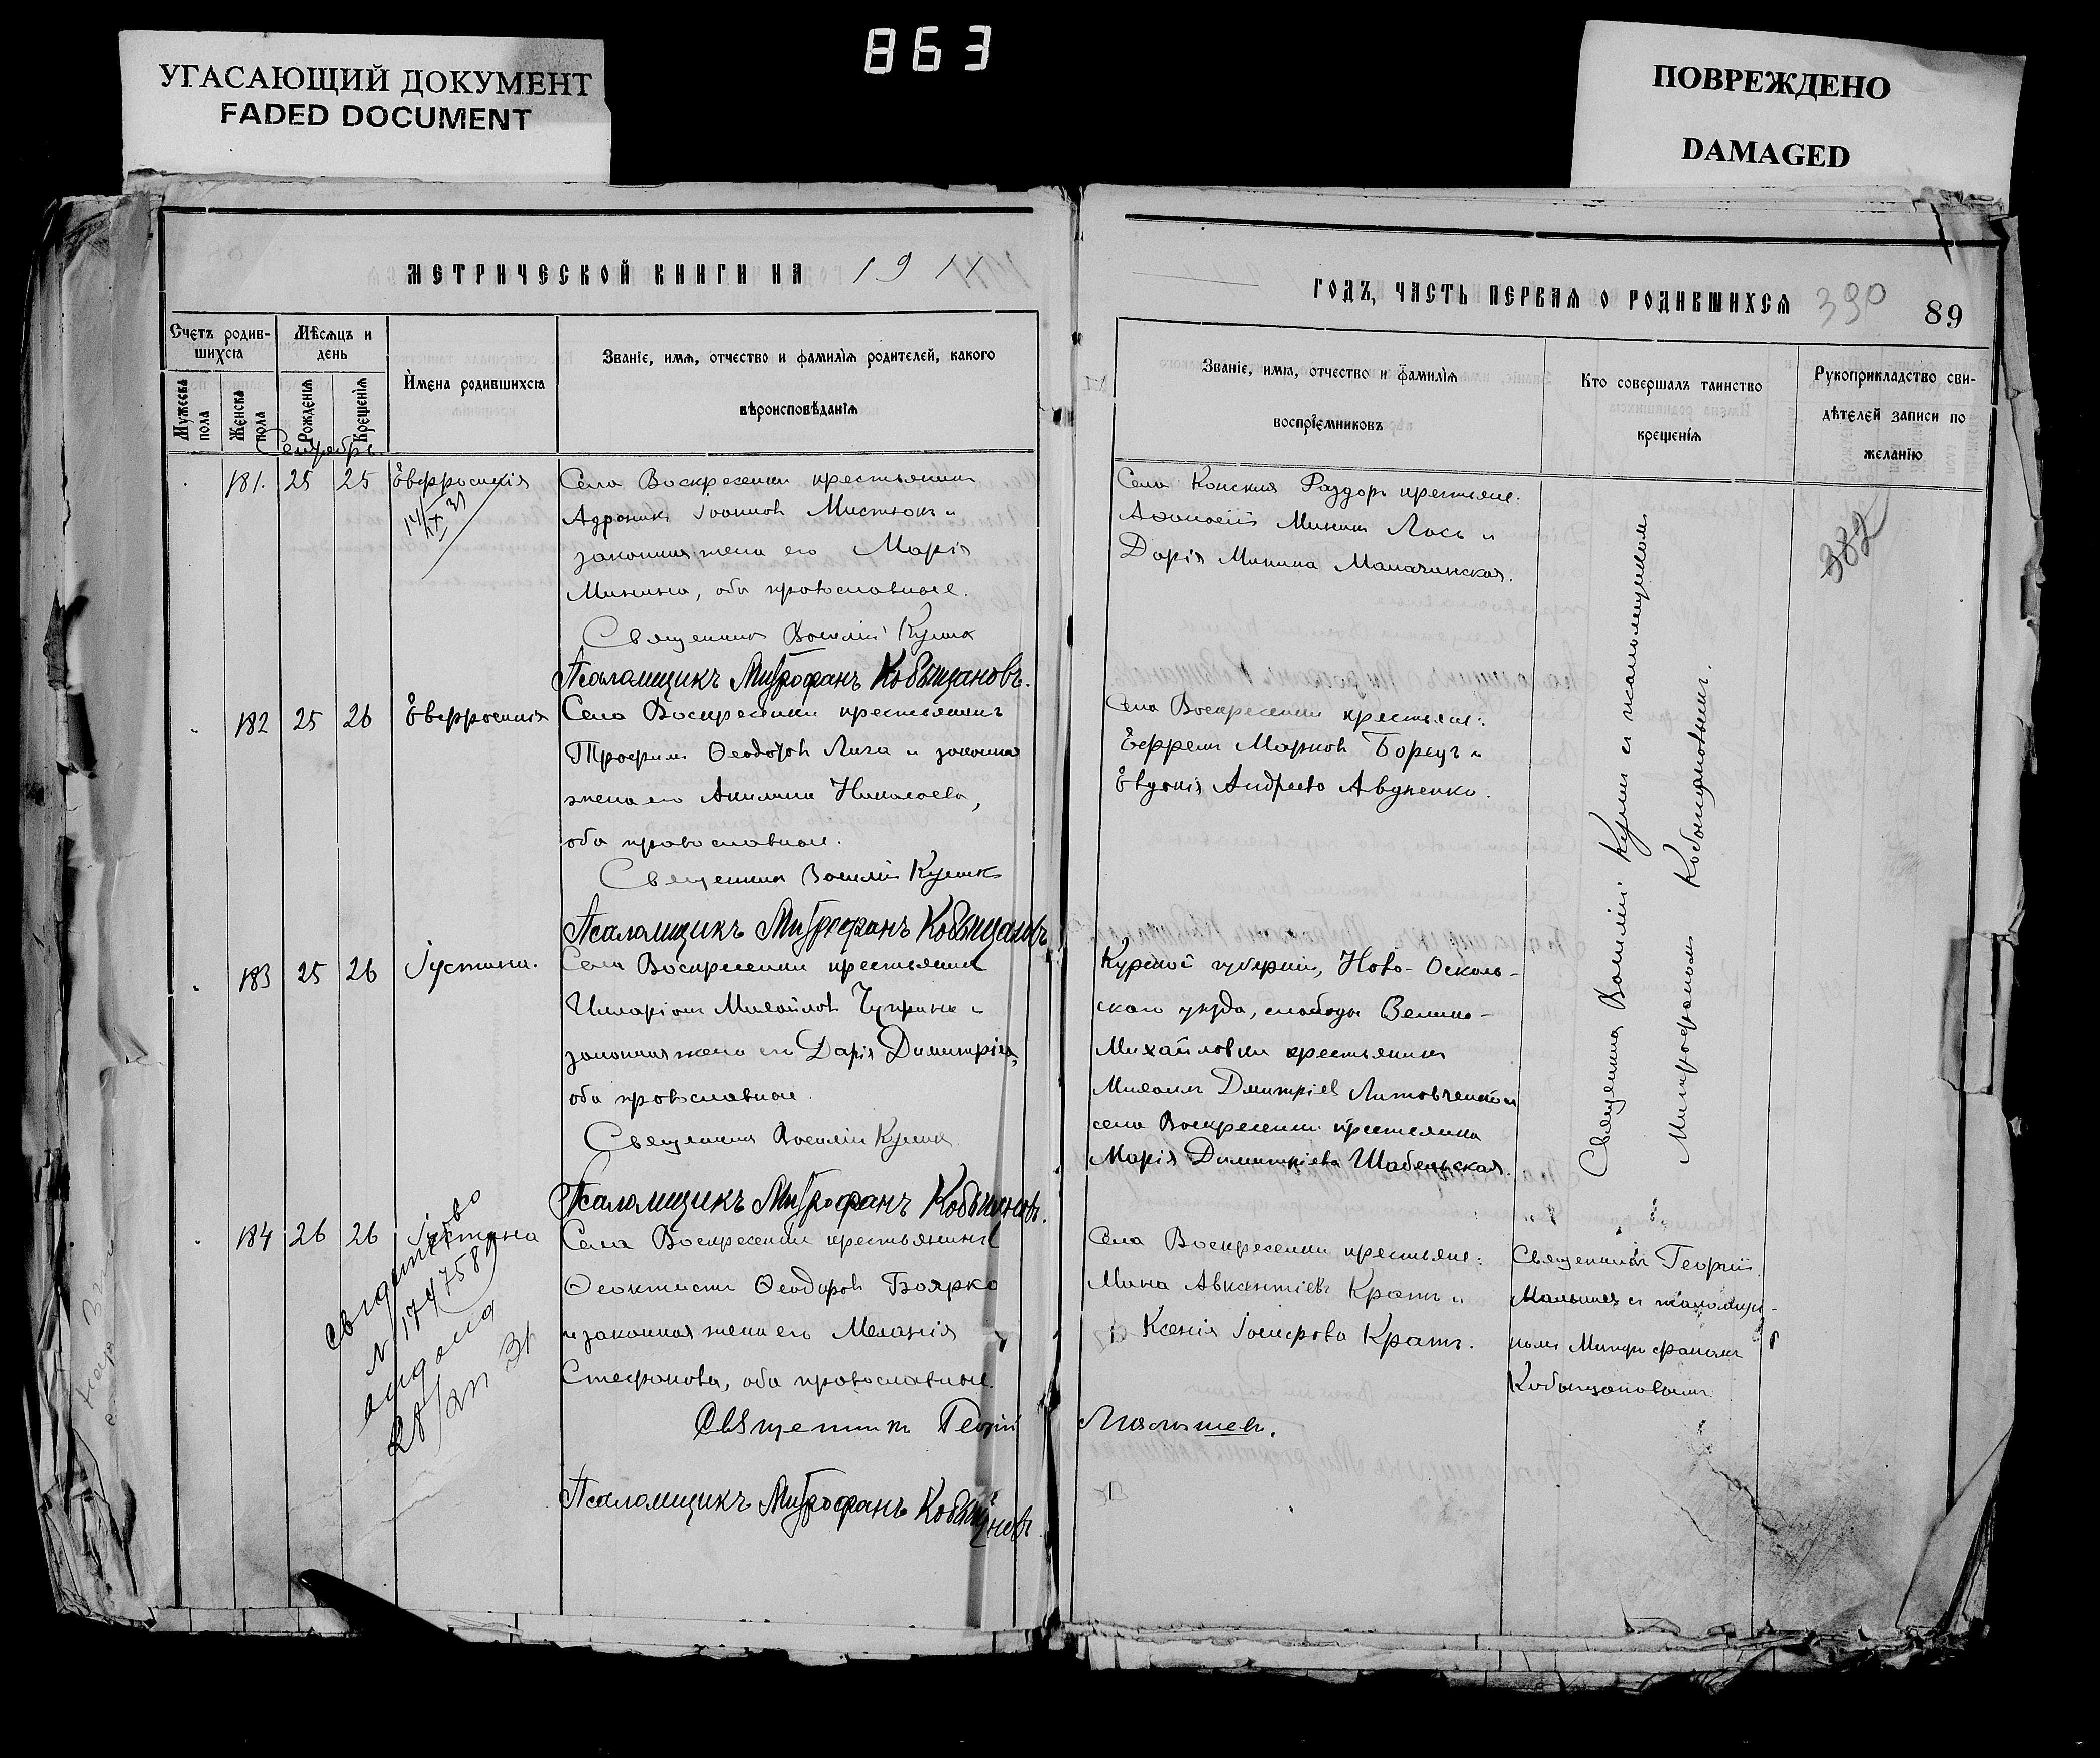 863
УГАСАЮЩИЙ ДОКУМЕНТ
FADED DOCUMENT
ПОВРЕЖДЕНО
DAMAGED
МЕТРИЧЕСКОЙ КНИГИ НА 1911
Счетъ родившихся
Мѣсяцъ и день
Мужеска пола
Женска пола
Рожденія
Крещенія
Имена родившихся
Званіе, имя, отчество и фамилія родителей, какого
вѣроисповѣданія
Сентябрь
181. 25 25 Евфросинія
Села Воскресенки крестьянинъ
Іоанновъ
законная жена его Марія
Минина, оба православные.
Священникъ Василій Куликъ
Псаломщикъ Митрофанъ Кобыщановъ.
182 25 26 Евфросинія
Села Воскресенки крестьянинъ
Трофимъ Ѳеодоровъ Лига и законная
жена его Акилина Николаева,
оба православные.
Священникъ Василій Куликъ
Псаломщикъ Митрофанъ Кобыщановъ
183 25 26 Іустина.
Села Воскресенки крестьянинъ
Иларіонъ Михайловъ Чуприна и
законная жена его Дарія Димитріева,
оба православные.
Священникъ Василій Куликъ
Псаломщикъ Митрофанъ Кобыщановъ.
184 26 26 Іустина
Села Воскресенки крестьянинъ
Ѳеоктистъ Ѳеодоровъ Боярко
и законная жена его Меланія
Стефанова, оба православные.
Священникъ Георгій Малышевъ.
Псаломщикъ Митрофанъ Кобыщановъ
ГОДЪ, ЧАСТЬ ПЕРВАЯ О РОДИВШИХСЯ 390 89
Званіе, имя, отчество и фамилія
воспріемниковъ
Кто совершалъ таинство
крещенія
Рукоприкладство сви-
дѣтелей записи по
желанію
Села Конскихъ Раздоръ крестьяне:
Аѳанасій Мининъ Лось и
Дарія Минина
382
Села Воскресенки крестьяне:
Ефремъ Марковъ Борсук и
Евдокія Андреева Авдиенко.
Курской губерніи, Ново-Осколь-
скаго уѣзда, слободы Велико-
Михайловки крестьянинъ
Михаилъ Димитріевъ Литовченко и
села Воскресенки крестьянка
Марія Димитріева Шабельская.
Священникъ Василій Куликъ съ псаломщикомъ
Митрофаномъ Кобыщановымъ.
Села Воскресенки крестьяне:
Мина Авксентіевъ Кратъ и
Ксенія Іосифова Кратъ.
Священникъ Георгій
Малышевъ съ псаломщи-
комъ Митрофаномъ
Кобыщановымъ.